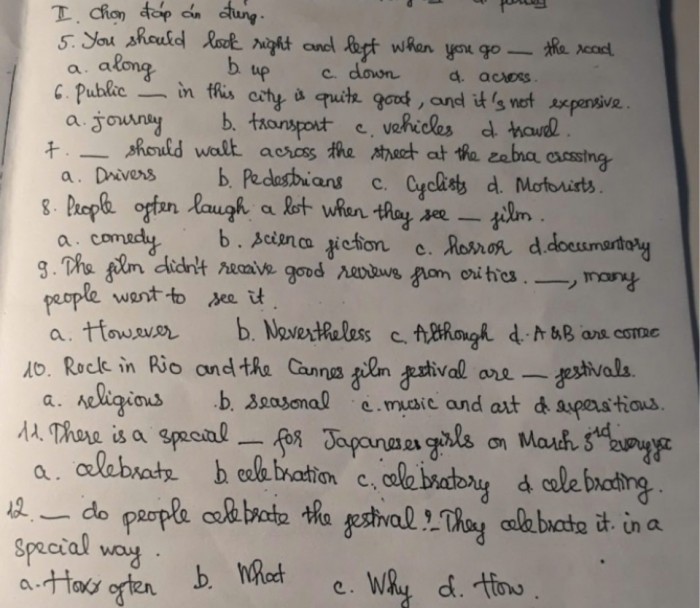 II. Chọn đáp án đúng.
5. You should look right and left when you go — the road
a. along b. up c. down d. across.
6. Public — in this city is quite good, and it's not expensive.
a. journey b. transport c. vehicles d. travel.
7. — should walk across the street at the zebra crossing
a. Drivers b. Pedestrians c. Cyclists d. Motorists.
8. People often laugh a lot when they see — film.
a. comedy b. science fiction c. horror d. documentary
9. The film didn't receive good reviews from critics. —, many
people went to see it.
a. However b. Nevertheless c. Although d. A & B are correc
10. Rock in Rio and the Cannes film festival are — festivals.
a. religious b. seasonal c. music and art d. supersitious.
11. There is a special — for Japaneses girls on March 3rd every ye
a. celebrate b. celebration c. celebratory d. celebrating.
12. — do people celebrate the festival? They celebrate it in a
special way.
a. How often b. What c. Why d. How.